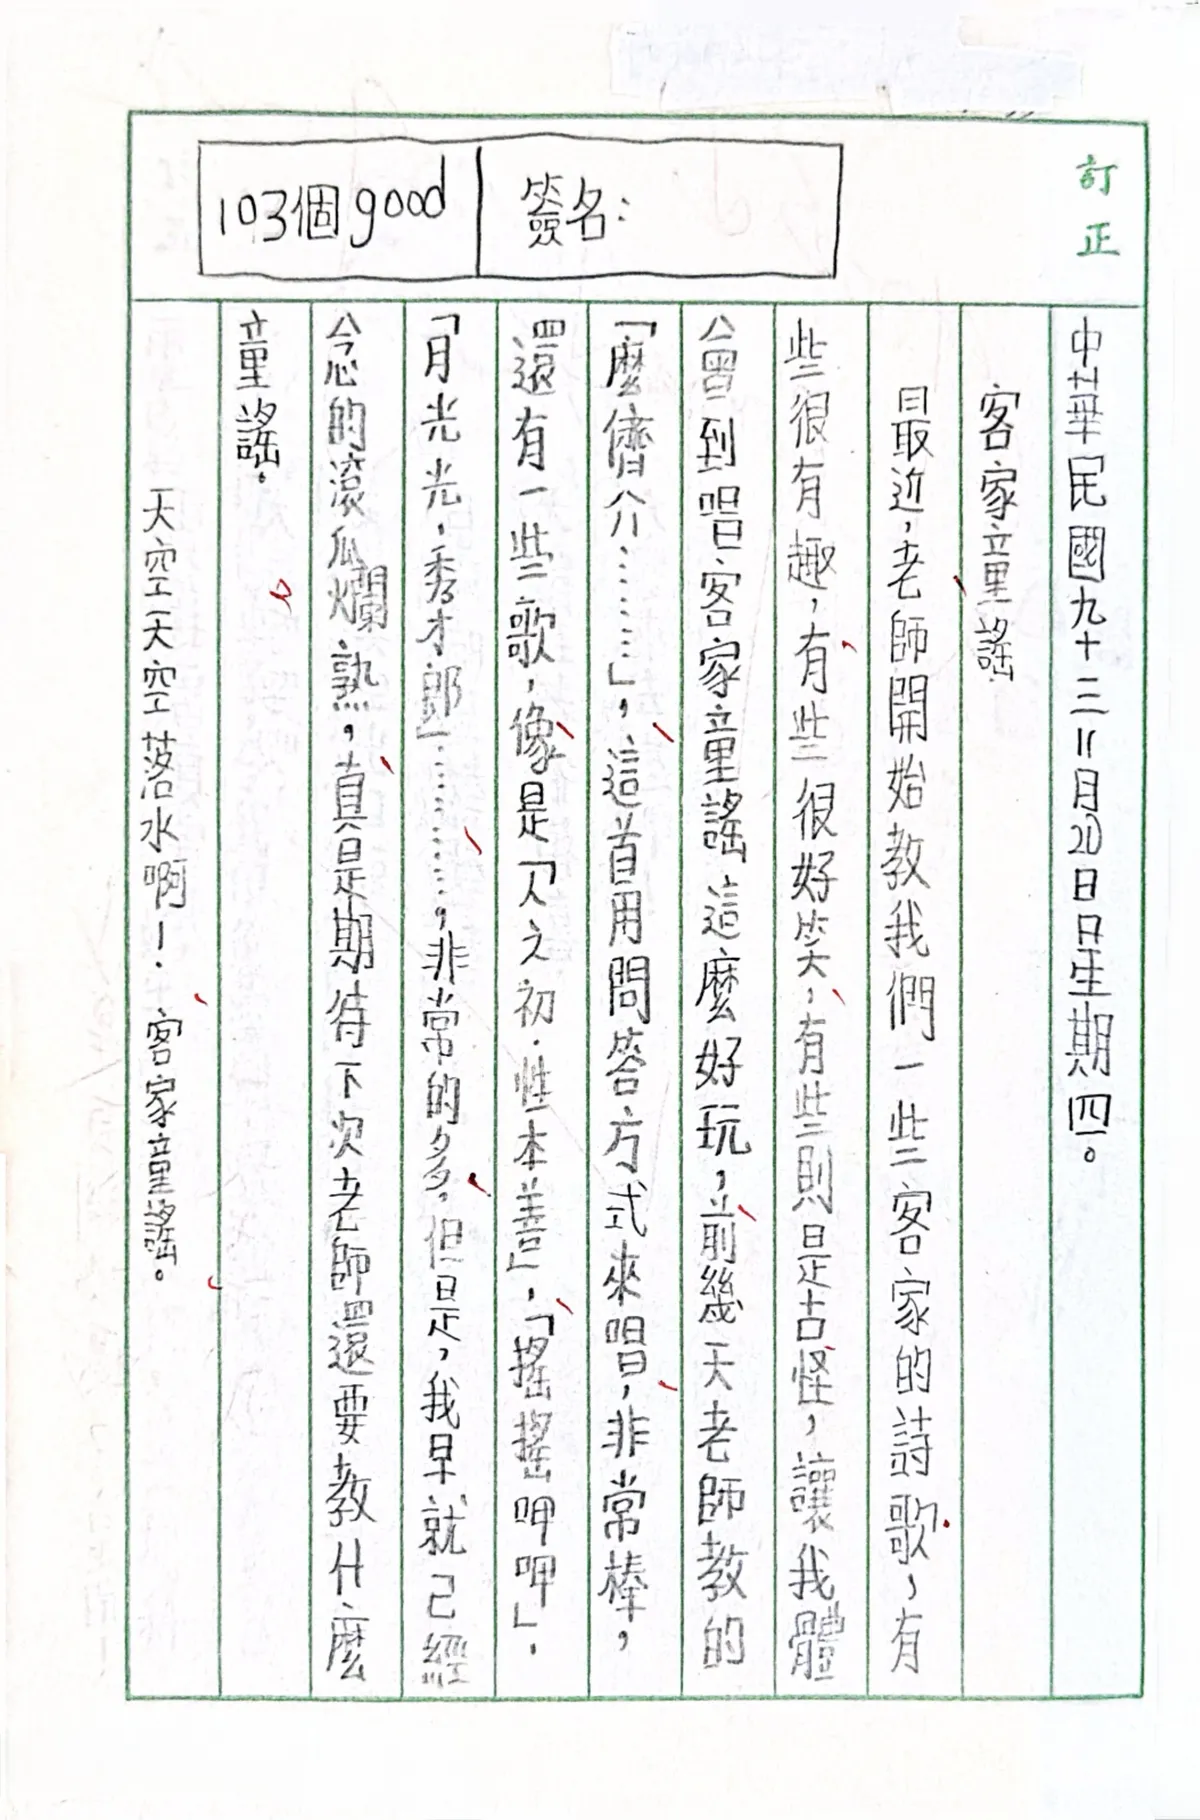 訂正
103個good
簽名：
中華民國九十三11月20日星期四。
客家童謠
最近，老師開始教我們一些客家的詩歌，有
些很有趣，有些很好笑，有些則是古怪，讓我體
會到唱客家童謠這麼好玩，前幾天老師教的
「麼儕介………」，這首用問答方式來唱，非常棒，
還有一些歌，像是「人之初．性本善」，「搖搖呷呷」．
「月光光，秀才郎」…………，非常的多，但是，我早就己經
念的滾瓜爛熟，真是期待下次老師還要教什麼
童謠。
天空天空落水啊！．客家童謠。